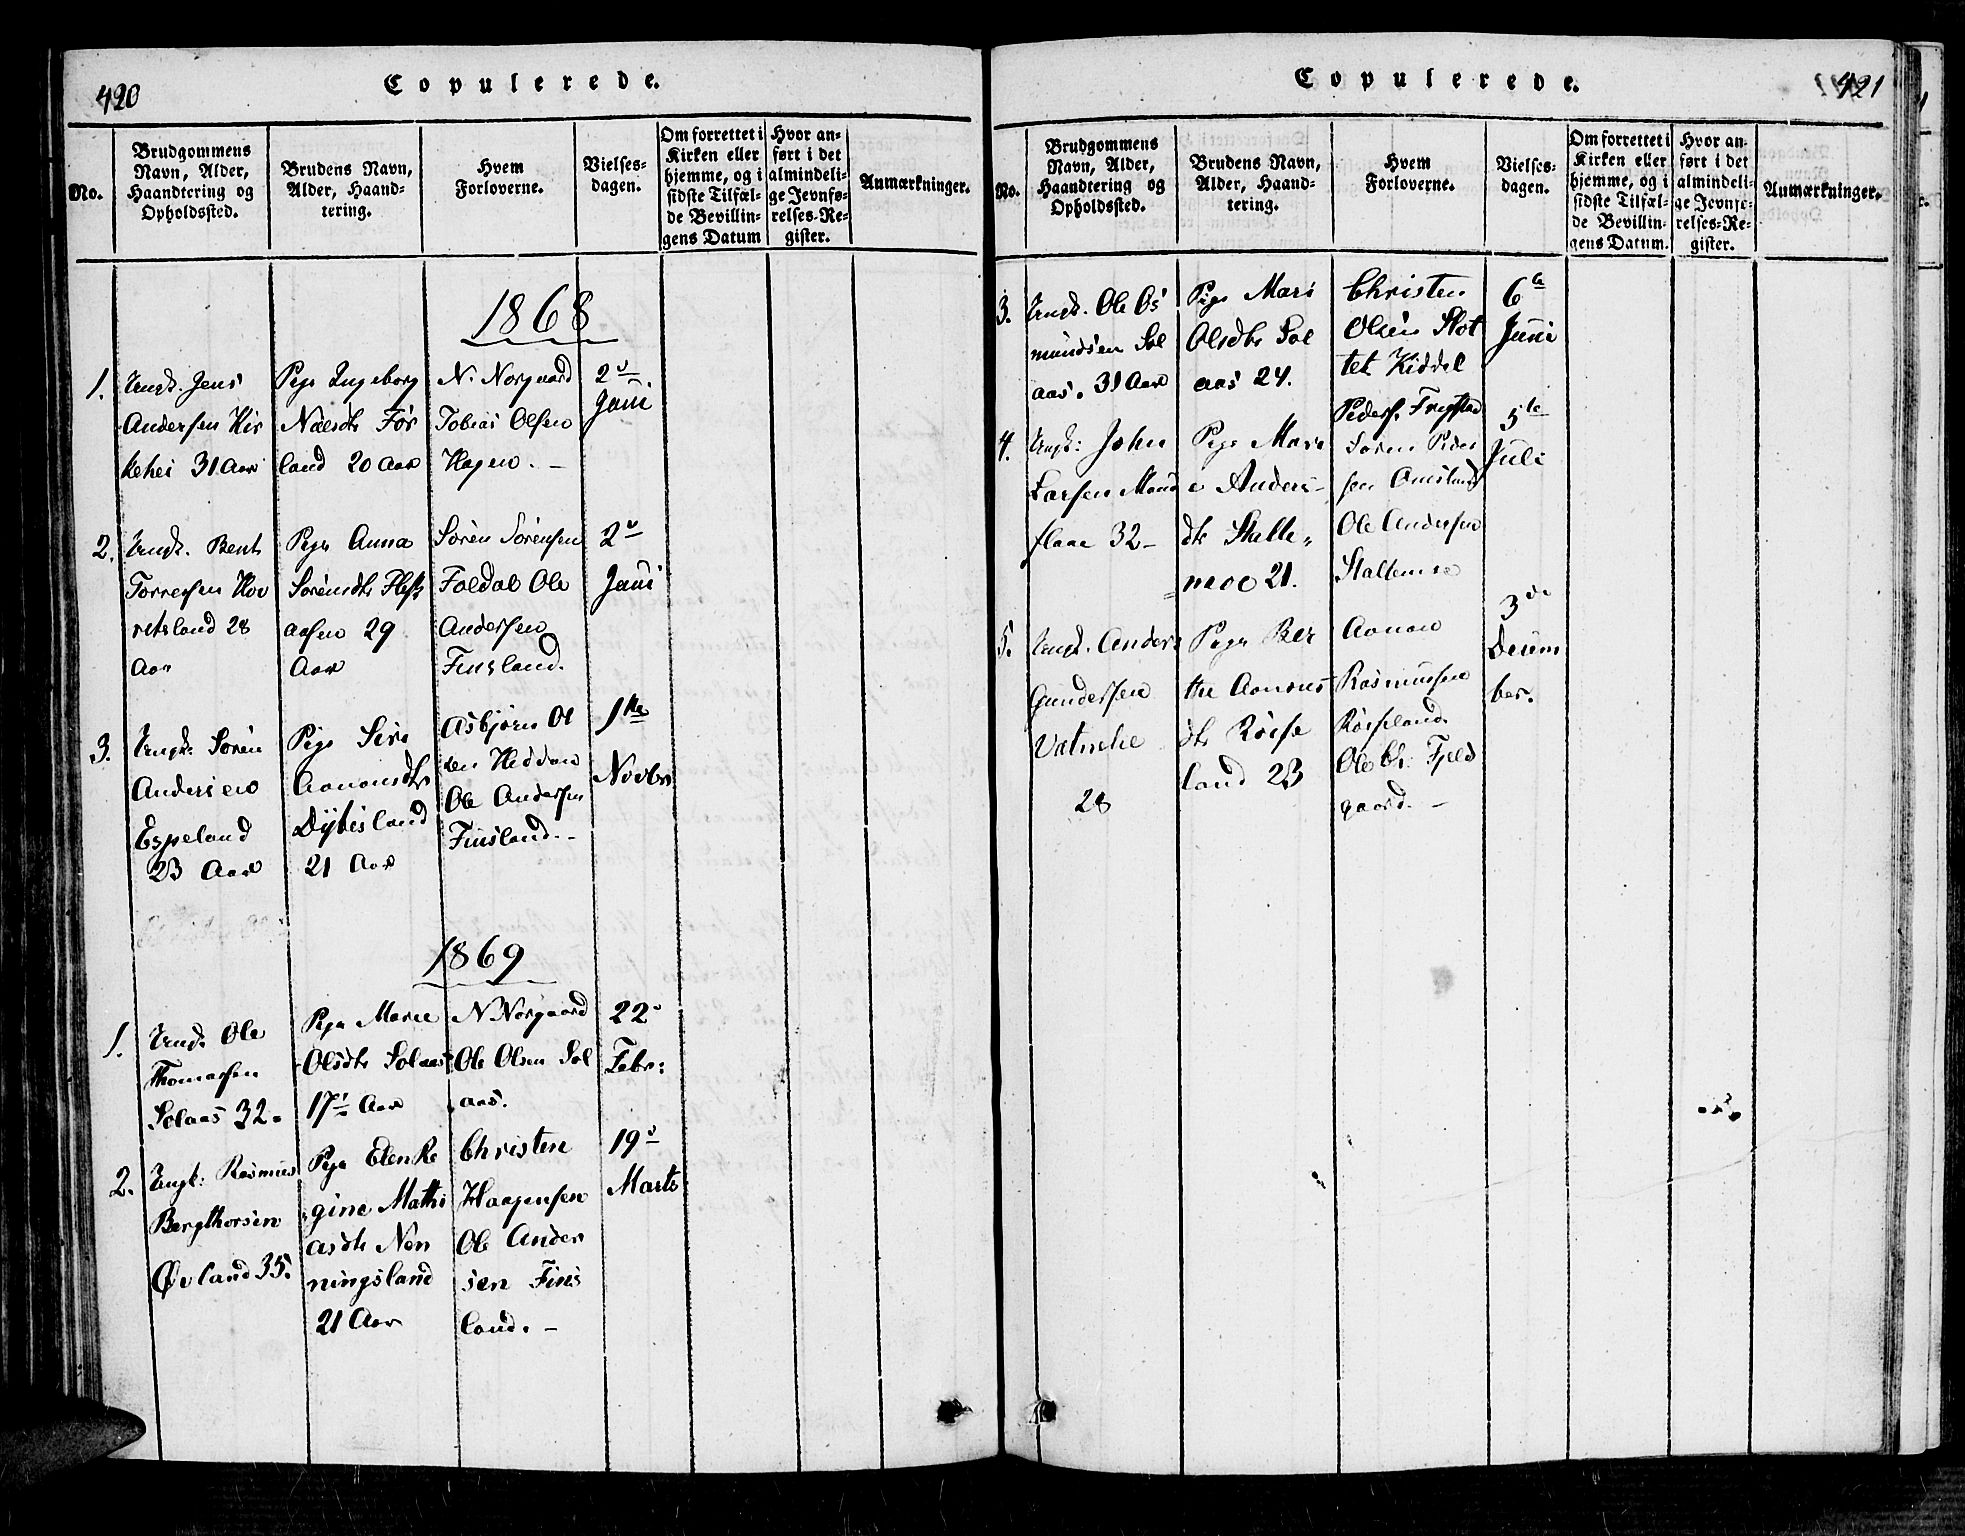 420
Copulerede.
No.
Brudgommens
Navn, Alder,
Haandtering og
Opholdssted.
Brudens Navn,
Alder, Haand-
tering.
Hvem
Forloverne.
Vielses-
dagen.
Om forrettet i
Kirken eller
hjemme, og i
sidste Tilfæl-
de Bevillin-
gens Datum
Hvor an-
ført i det
almindeli-
ge Jevnfø-
relses-Re-
gister.
Anmærkninger.
1868
1.
Ungk. Jens
Andersen Kir
kehei 31 Aar
Pige Ingeborg
Nælsdtr För
land 20 Aar
N. Norgaard
Tobias Olsen
Hagen. -
2
Juni
2.
Ungk. Bent
Torresen Hov
retsland 28
Aar
Pige Anna
Sörensdtr
aasen 29
Aar
Sören Sörensen
Foldal Ole
Andersen
Finsland.
2
Juni
3.
Ungk. Sören
Andersen
Espeland
23 Aar
Pige Siri
Aanonsdtr
Dybesland
21 Aar
Asbjörn Ol
sen Heddan
Ole Andersen
Finsland. -
1ste
Novbr
1869
1.
Ungk. Ole
Thomassen
Solaas 32
Pige Maren
Olsdtr Solaas
17 Aar
N. Norgaard
Ole Olsen Sol
aas.
22
Febr:
2.
Ungk: Rasmus
Bergthorsen
Øvland 35.
Pige Elen Re
gine Mathi
asdtr Non
ningsland
21 Aar
Christen
Haagensen
Ole Ander
sen Fins
land. -
19
Marts
421
Copulerede.
No.
Brudgommens
Navn, Alder,
Haandtering og
Opholdssted.
Brudens Navn,
Alder, Haand-
tering.
Hvem
Forloverne.
Vielses-
dagen.
Om forrettet i
Kirken eller
hjemme, og i
sidste Tilfæl-
de Bevillin-
gens Datum.
Hvor an-
ført i det
almindeli-
ge Jevnfø-
relses-Re-
gister.
Anmærkninger.
3.
Ungk. Ole Os
mundsen Sol
aas. 31 Aar
Pige Mari
Olsdtr Sol
aas 24.
Christen
Olsen Slot
tet Kiddel
Peders. Frigstad
6te
Juni
4.
Ungk: John
Larsen Mand
flaae 32 -
Pige Mari
e Anders-
dtr Stalle-
moe 21.
Sören Peder
sen Omsland
Ole Andersen
Stallemoe
5te
Juli
5.
Ungk. Anders
Gundersen
Vatnelie
28
Pige Ber
the Aanons
dtr Röise
land 23
Aanon
Rasmussen
Röiseland.
Ole Chr. Fjeld
gaard. -
3de
Decem
ber.